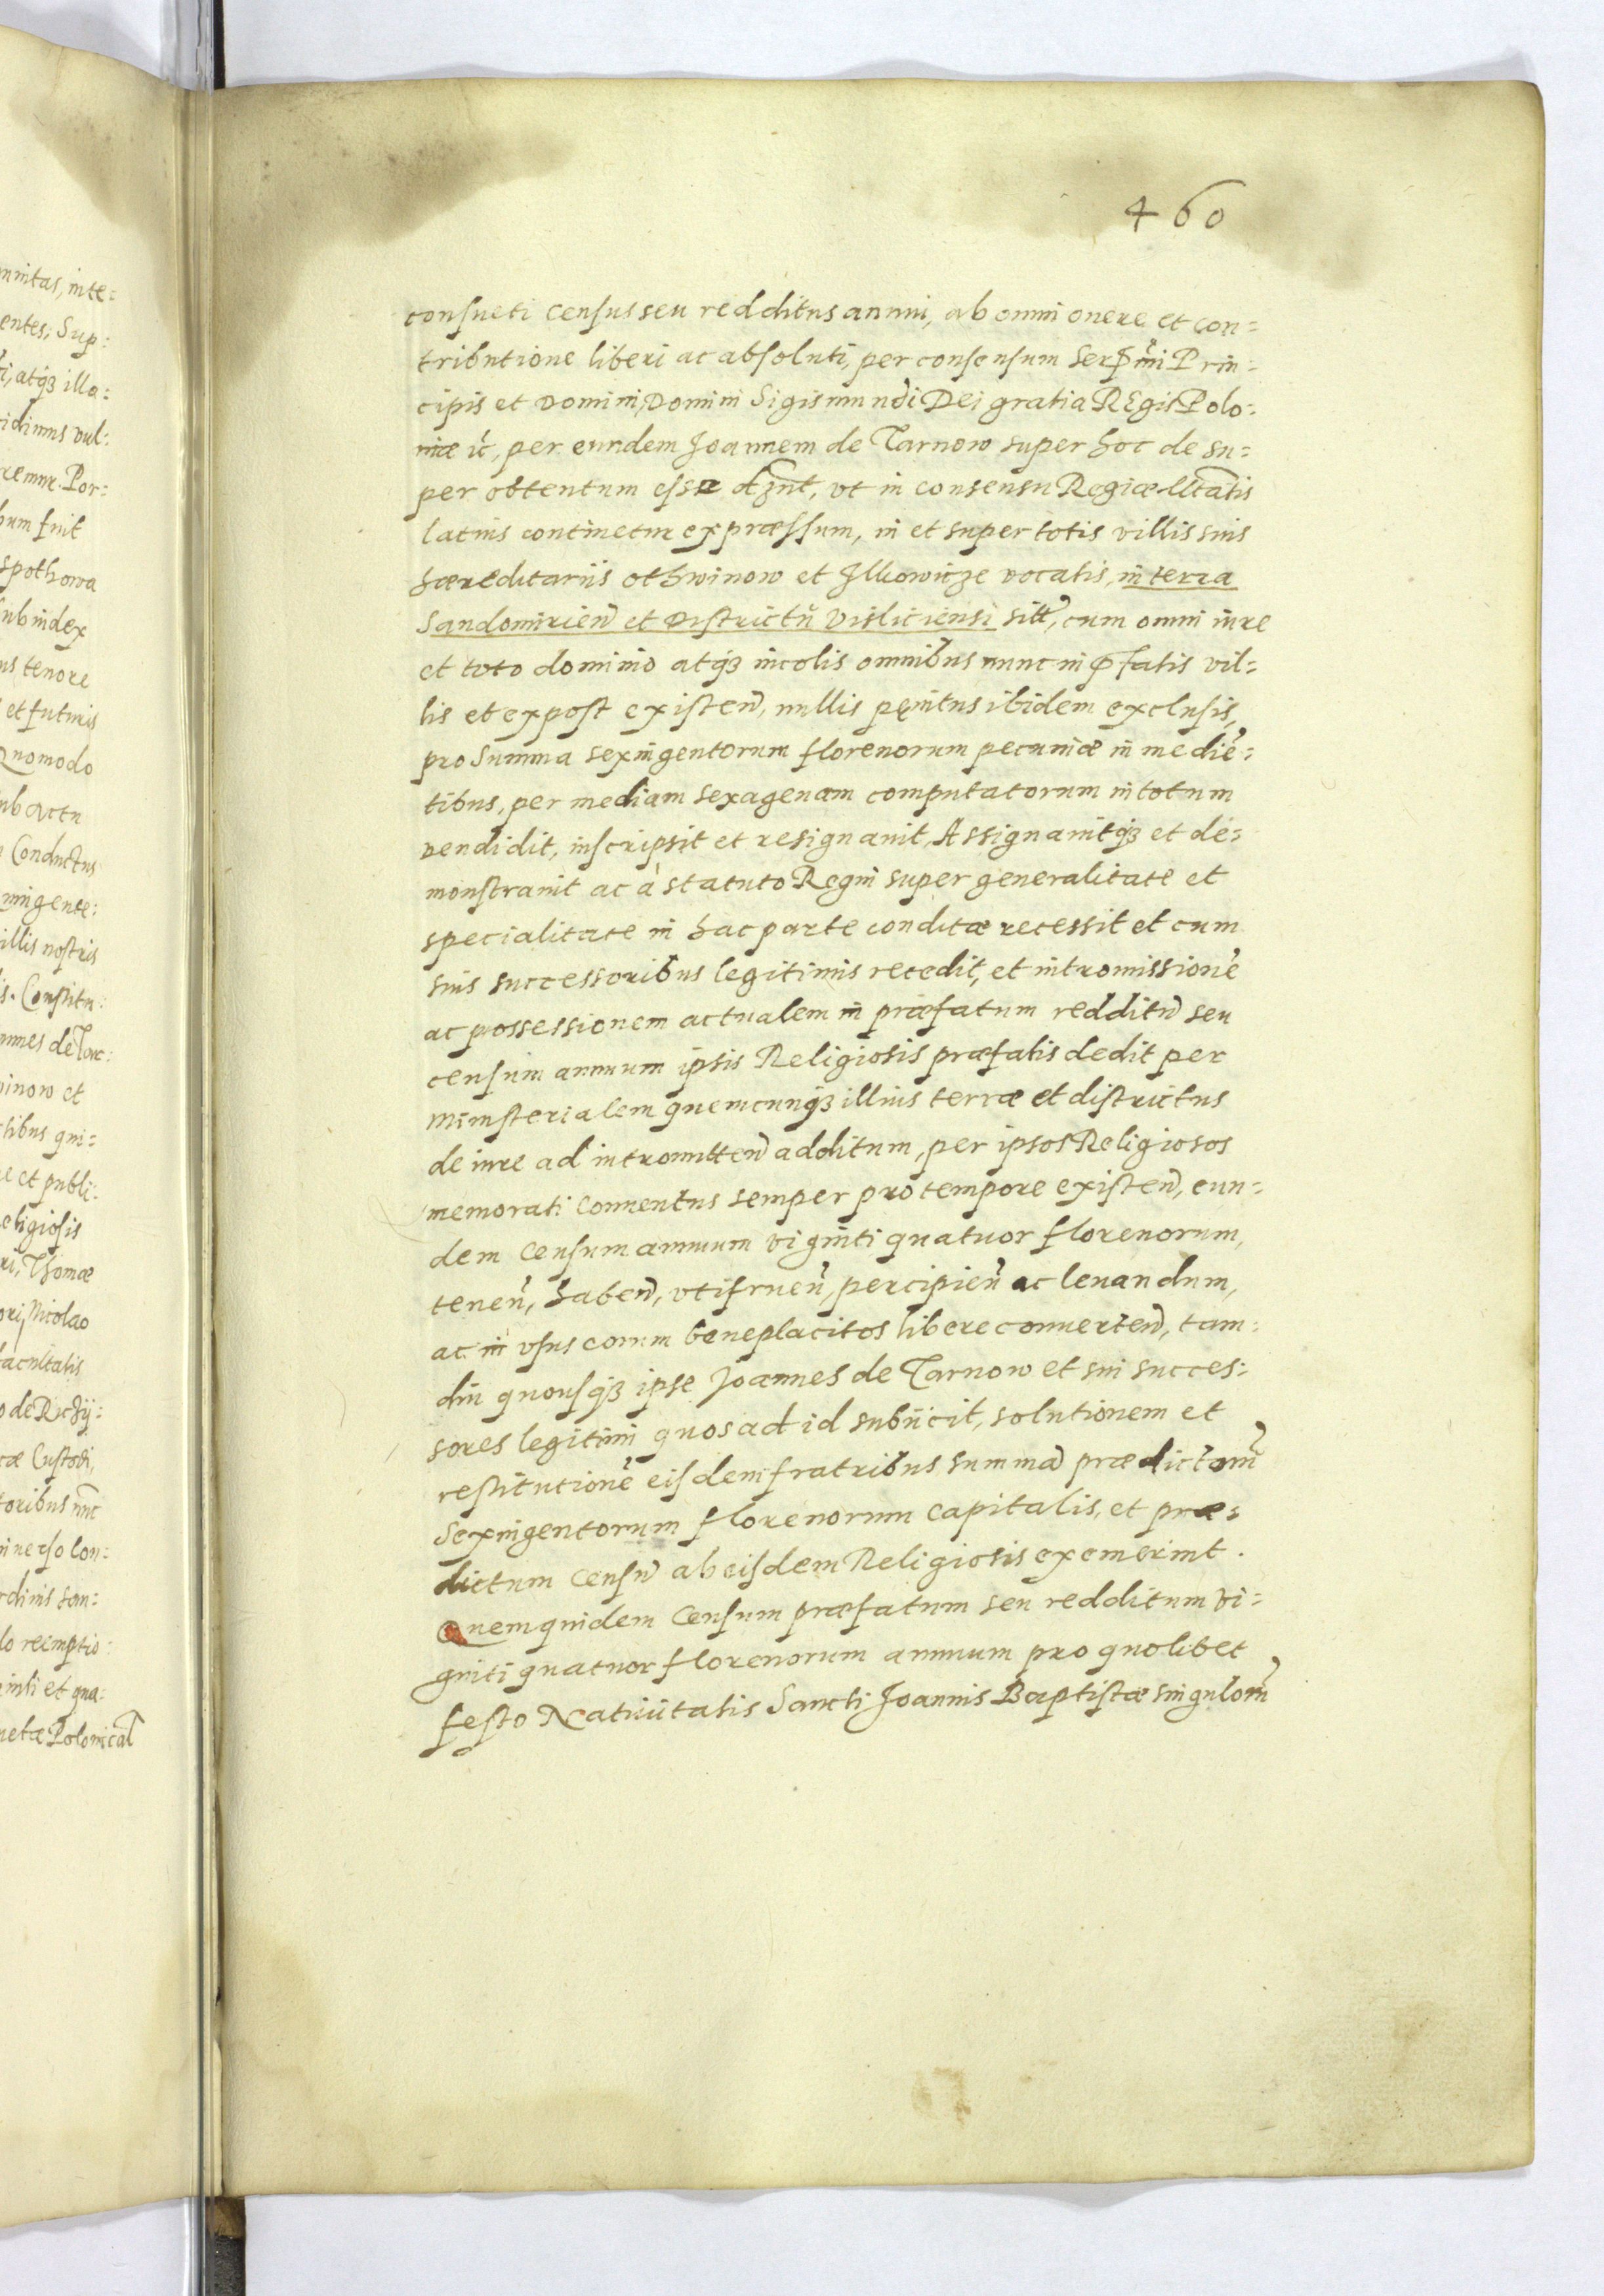 460
consueti censusseu redditus annui, ab omni onere et con=
tributione liberi ac absoluti, per consensum Ser mi Prin=
cipis et Domini, Domini Sigismundi Dei gratia REgis Polo=
niæ ic, per eundem Joannem de Tarnow super hoc de su=
per obtentum esse, vt in consensu Regiæ Mtatis
latius continetur expræssum, in et super totis villis suis
hæreditariis othwinow et Illkowicze vocatis, in terra
Sandomirien et Districtu Visliciensi sitt, cum omni iure
et toto dominio atqȝ incolis omnibus nunc in pfatis vil=
lis et expost existen, nullis pęnitus ibidem exclusis,
pro Summa sexingentorum florenorum pecuniæ in medie=
tibus, per mediam sexagenam computatorum in totum
vendidit, inscripsit et resignauit, Assignauitqȝ et de=
monstrauit ac à statuto Regni super generalitate et
specialitate in hac parte conditæ recessit et cum
suis successoribus legitimis recedit, et intromissione
ac possessionem actualem in præfatum redditu seu
censum annuum ipsis Religiosis præfatis dedit per
ministerialem quemcunqȝ illius terræ et districtus
de iure ad intromitten additum, per ipsos Religiosos
memorati Conuentus semper pro tempore existen, eun=
dem Censum annuum viginti quatuor florenorum,
tenen, haben, vtifruen, percipien ac leuandum,
ac in vsus eorum beneplacitos libere conuerten, tam=
diu quousqȝ ipse Joannes de Tarnow et sui succes=
sores legitimi quos ad id subiicit, solutionem et
restitutione eisdem fratribus summa prædictam
Sexingentorum florenorum Capitalis, et præ=
dictum Censu ab eisdem Religiosis exemerint.
Quemquidem Censum præfatum seu redditum vi=
ginti quatuor florenorum annuum pro quolibet
festo Natiuitatis Sancti Joannis Baptistæ singulorum